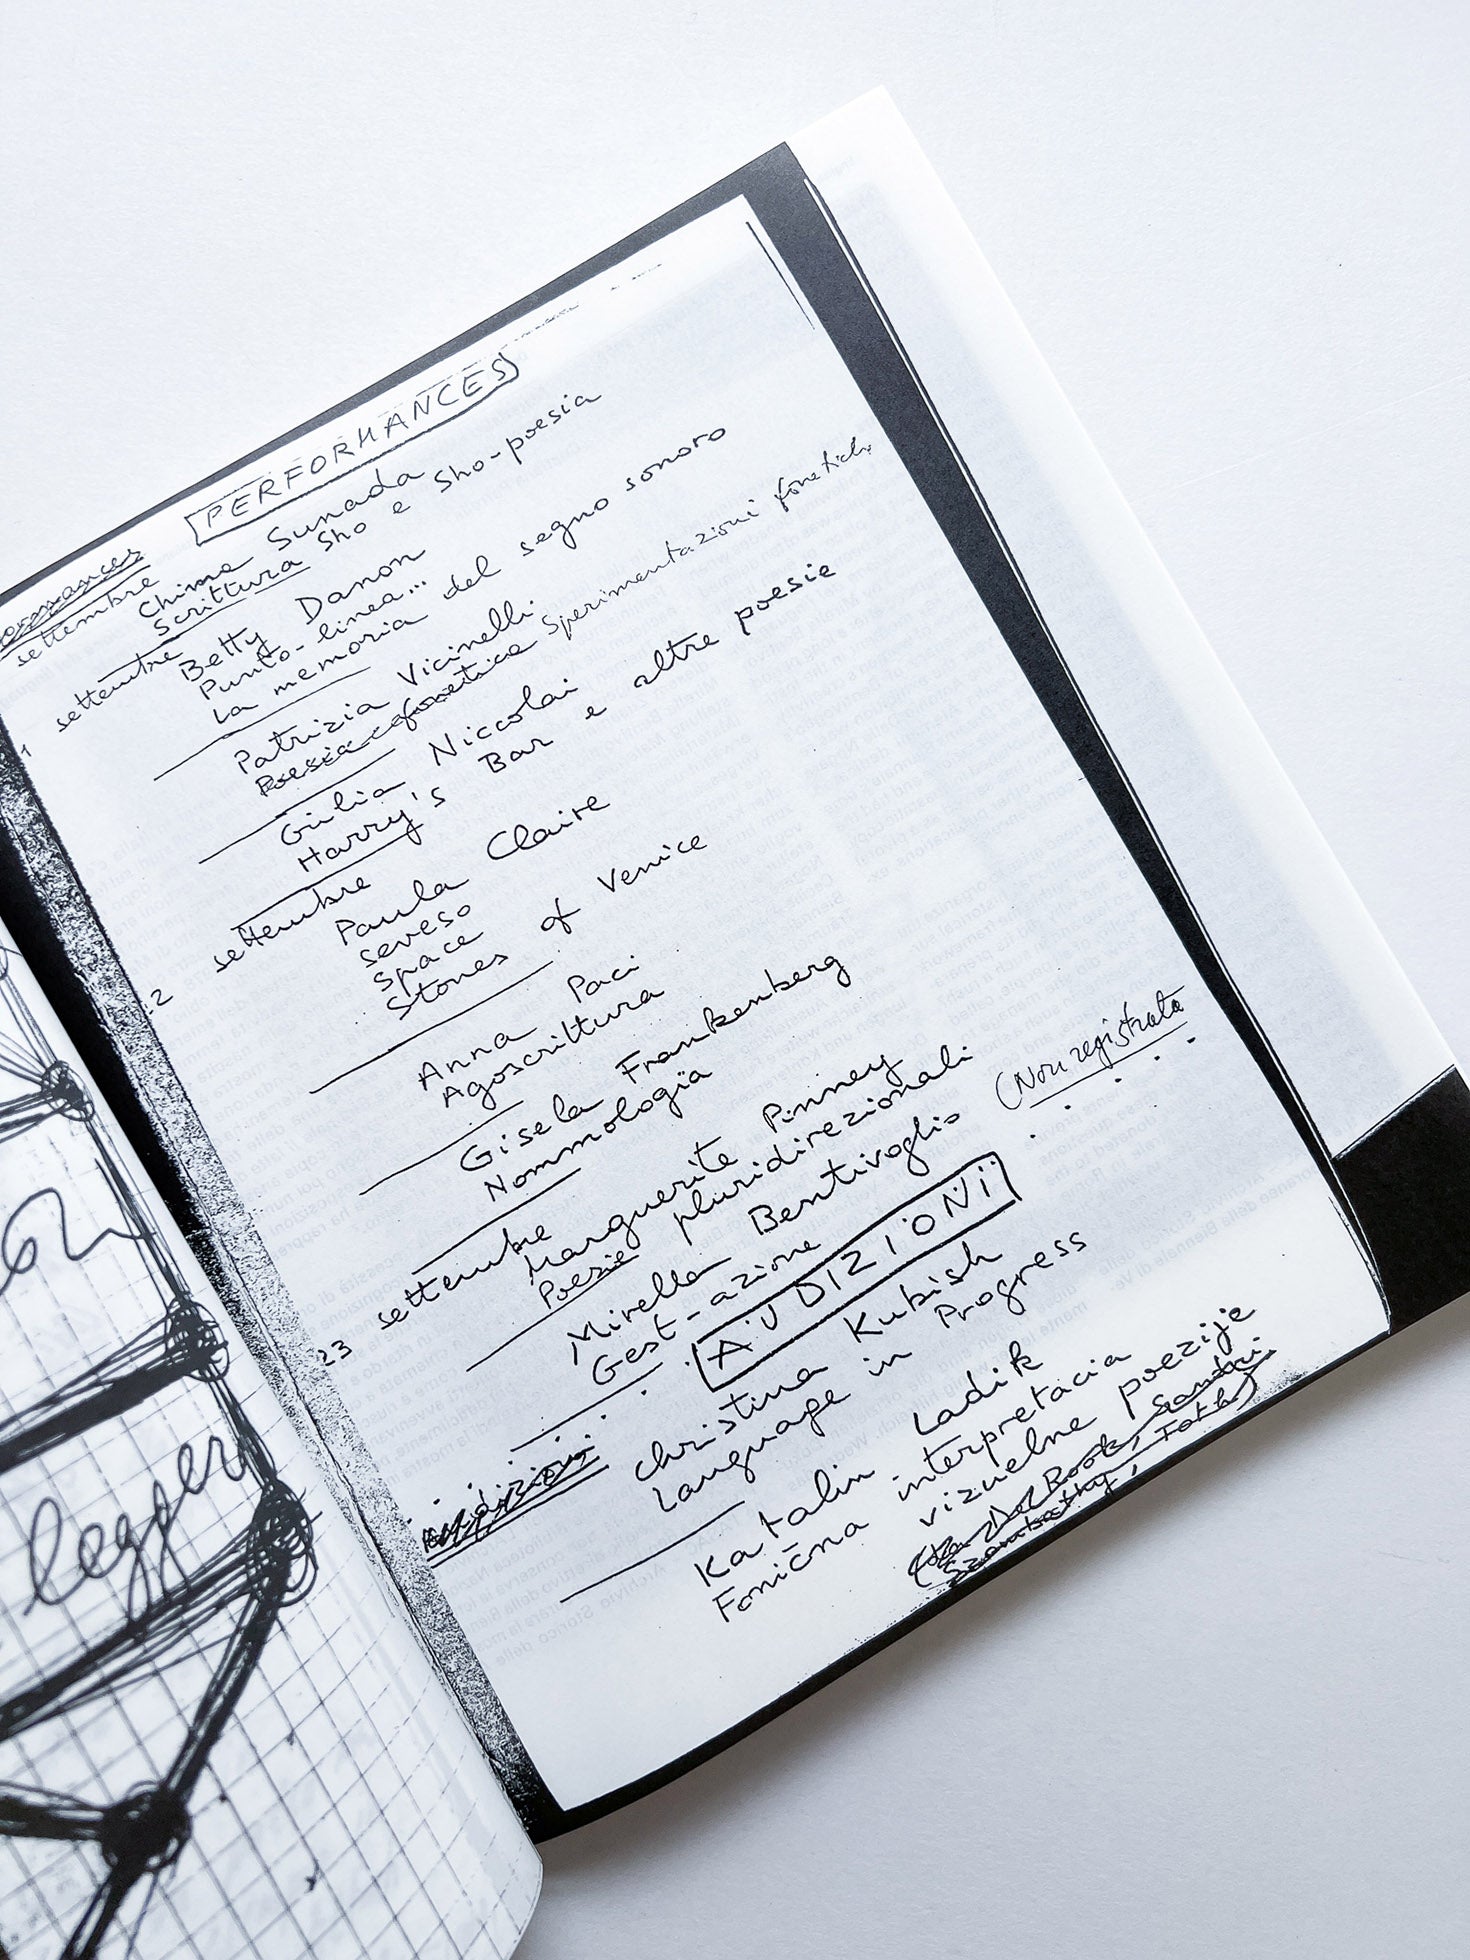 PERFORMANCES
settembre
Chima Sunada
Scrittura Sho e Sho-poesia
settembre
Betty Danon
Punto-linea...
La memoria del segno sonoro
Patrizia Vicinelli
Poesia fonetica Sperimentazioni fonetich.
Giulia Niccolai
Harry's Bar e altre poesie
settembre
Paula Claire
Seveso
Space
Stones of Venice
Anna Paci
Agoscrittura
Gisela Frankenberg
Nommologia
settembre
Marguerite Pinney
Poesie pluridirezionali
23 settembre
Mirella Bentivoglio (Non registrata
Gest-azione
AUDIZIONI
audizioni
Christina Kubish
Language in Progress
Katalin Ladik
Fonična interpretacia
vizuelne poezije
leggere